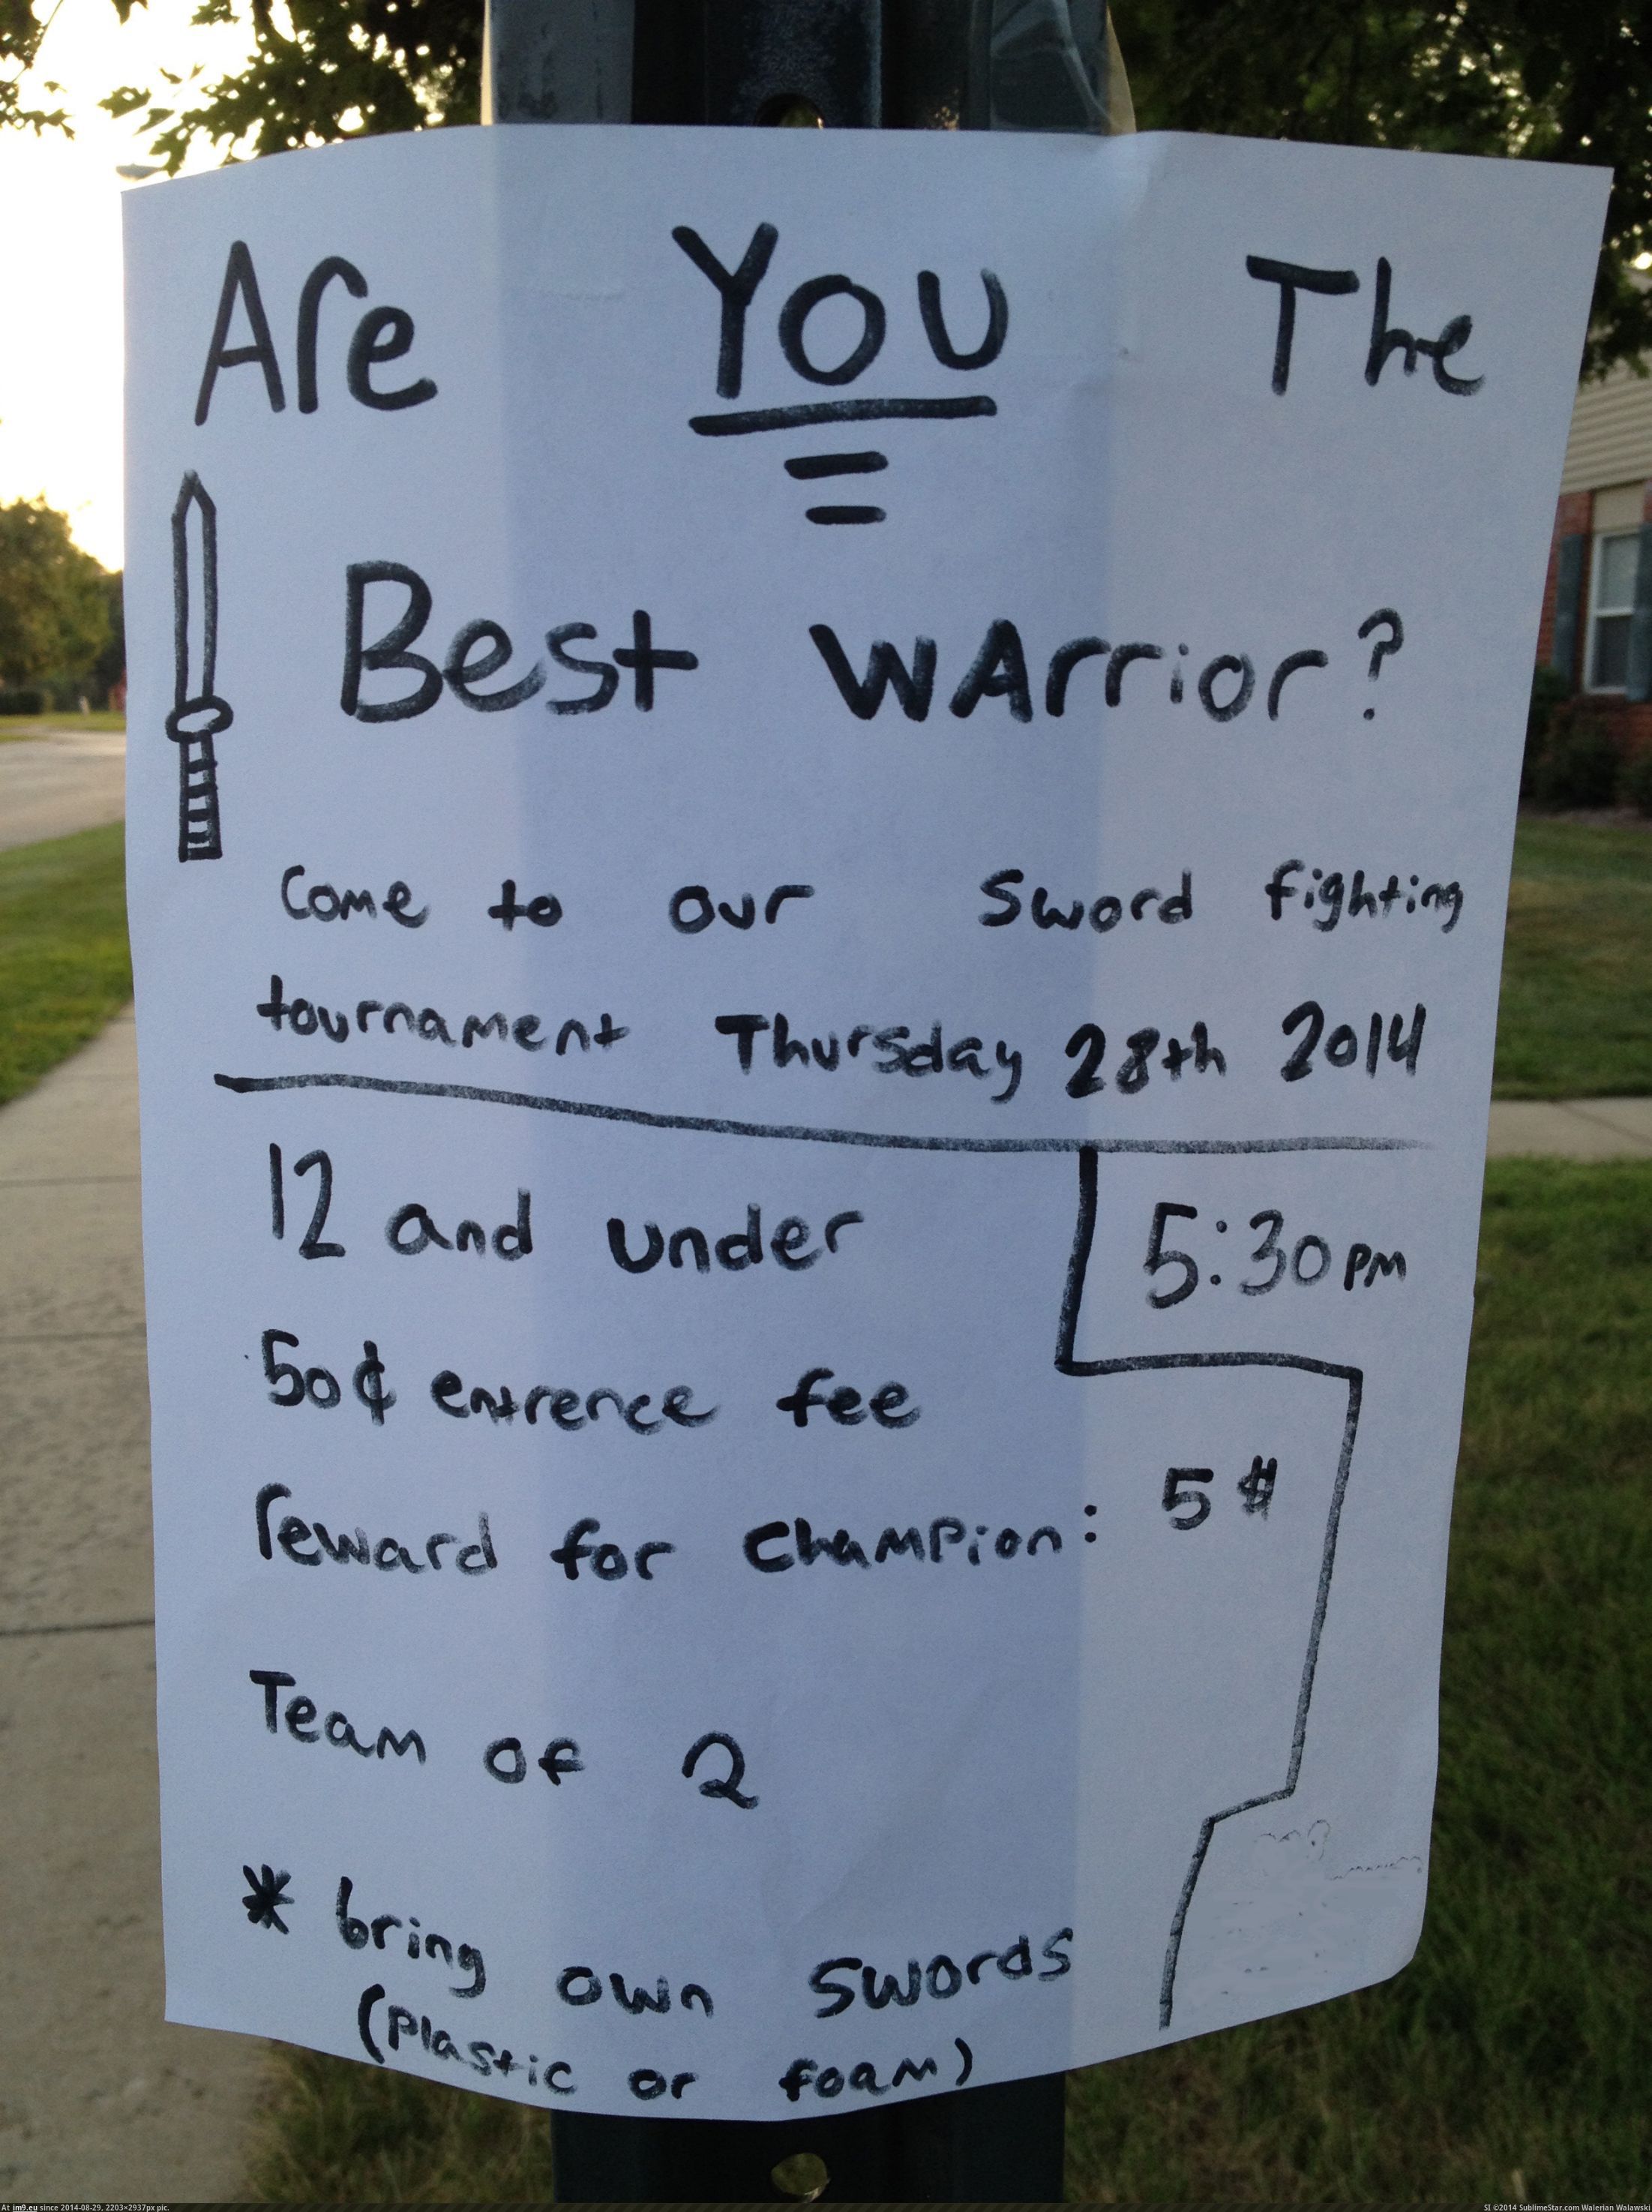 Are YOU The
Best WArrior?
Come to our Sword fighting
tournament Thursday 28th 2014
12 and under
5:30 PM
50¢ entrence fee
reward for Champion: 5 $
Team of 2
* bring own swords
(plastic or foam)
At im9.eu since 2014-08-29, 2203×2937px pic.
SI ©2014 SublimeStar.com Walerian Walawski